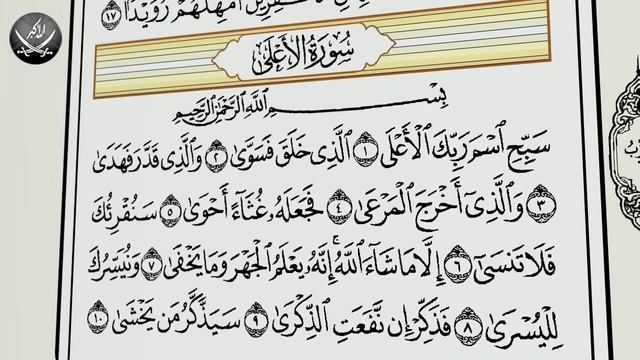 أَمْهِلْهُمْ رُوَيْدًا ١٧
سُورَةُ الأَعْلَىٰ
بِسْمِ اللَّهِ الرَّحْمَٰنِ الرَّحِيمِ
سَبِّحِ اسْمَ رَبِّكَ الْأَعْلَى ١ الَّذِي خَلَقَ فَسَوَّىٰ ٢ وَالَّذِي قَدَّرَ فَهَدَىٰ
٣ وَالَّذِي أَخْرَجَ الْمَرْعَىٰ ٤ فَجَعَلَهُ غُثَاءً أَحْوَىٰ ٥ سَنُقْرِئُكَ
فَلَا تَنسَىٰ ٦ إِلَّا مَا شَاءَ اللَّهُ ۚ إِنَّهُ يَعْلَمُ الْجَهْرَ وَمَا يَخْفَىٰ ٧ وَنُيَسِّرُكَ
لِلْيُسْرَىٰ ٨ فَذَكِّرْ إِن نَّفَعَتِ الذِّكْرَىٰ ٩ سَيَذَّكَّرُ مَن يَخْشَىٰ ١٠